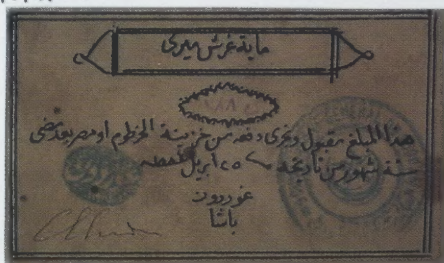 ماية غرش ميرى
هذا المبلغ مقبول ونجرى دفعه من خزينة الخرطوم او مصر بعد مضى
ستة شهور من تاريخه ٢٥ ابريل
غوردون
باشا